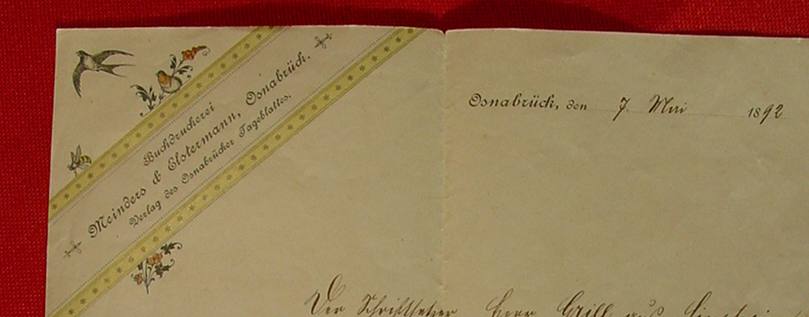 Buchdruckerei
Meinders & Elstermann, Osnabrück.
Verlag des Osnabrücker Tageblattes.
Osnabrück, den 7. Mai 1892
Der Schriftsetzer Herr Grill aus